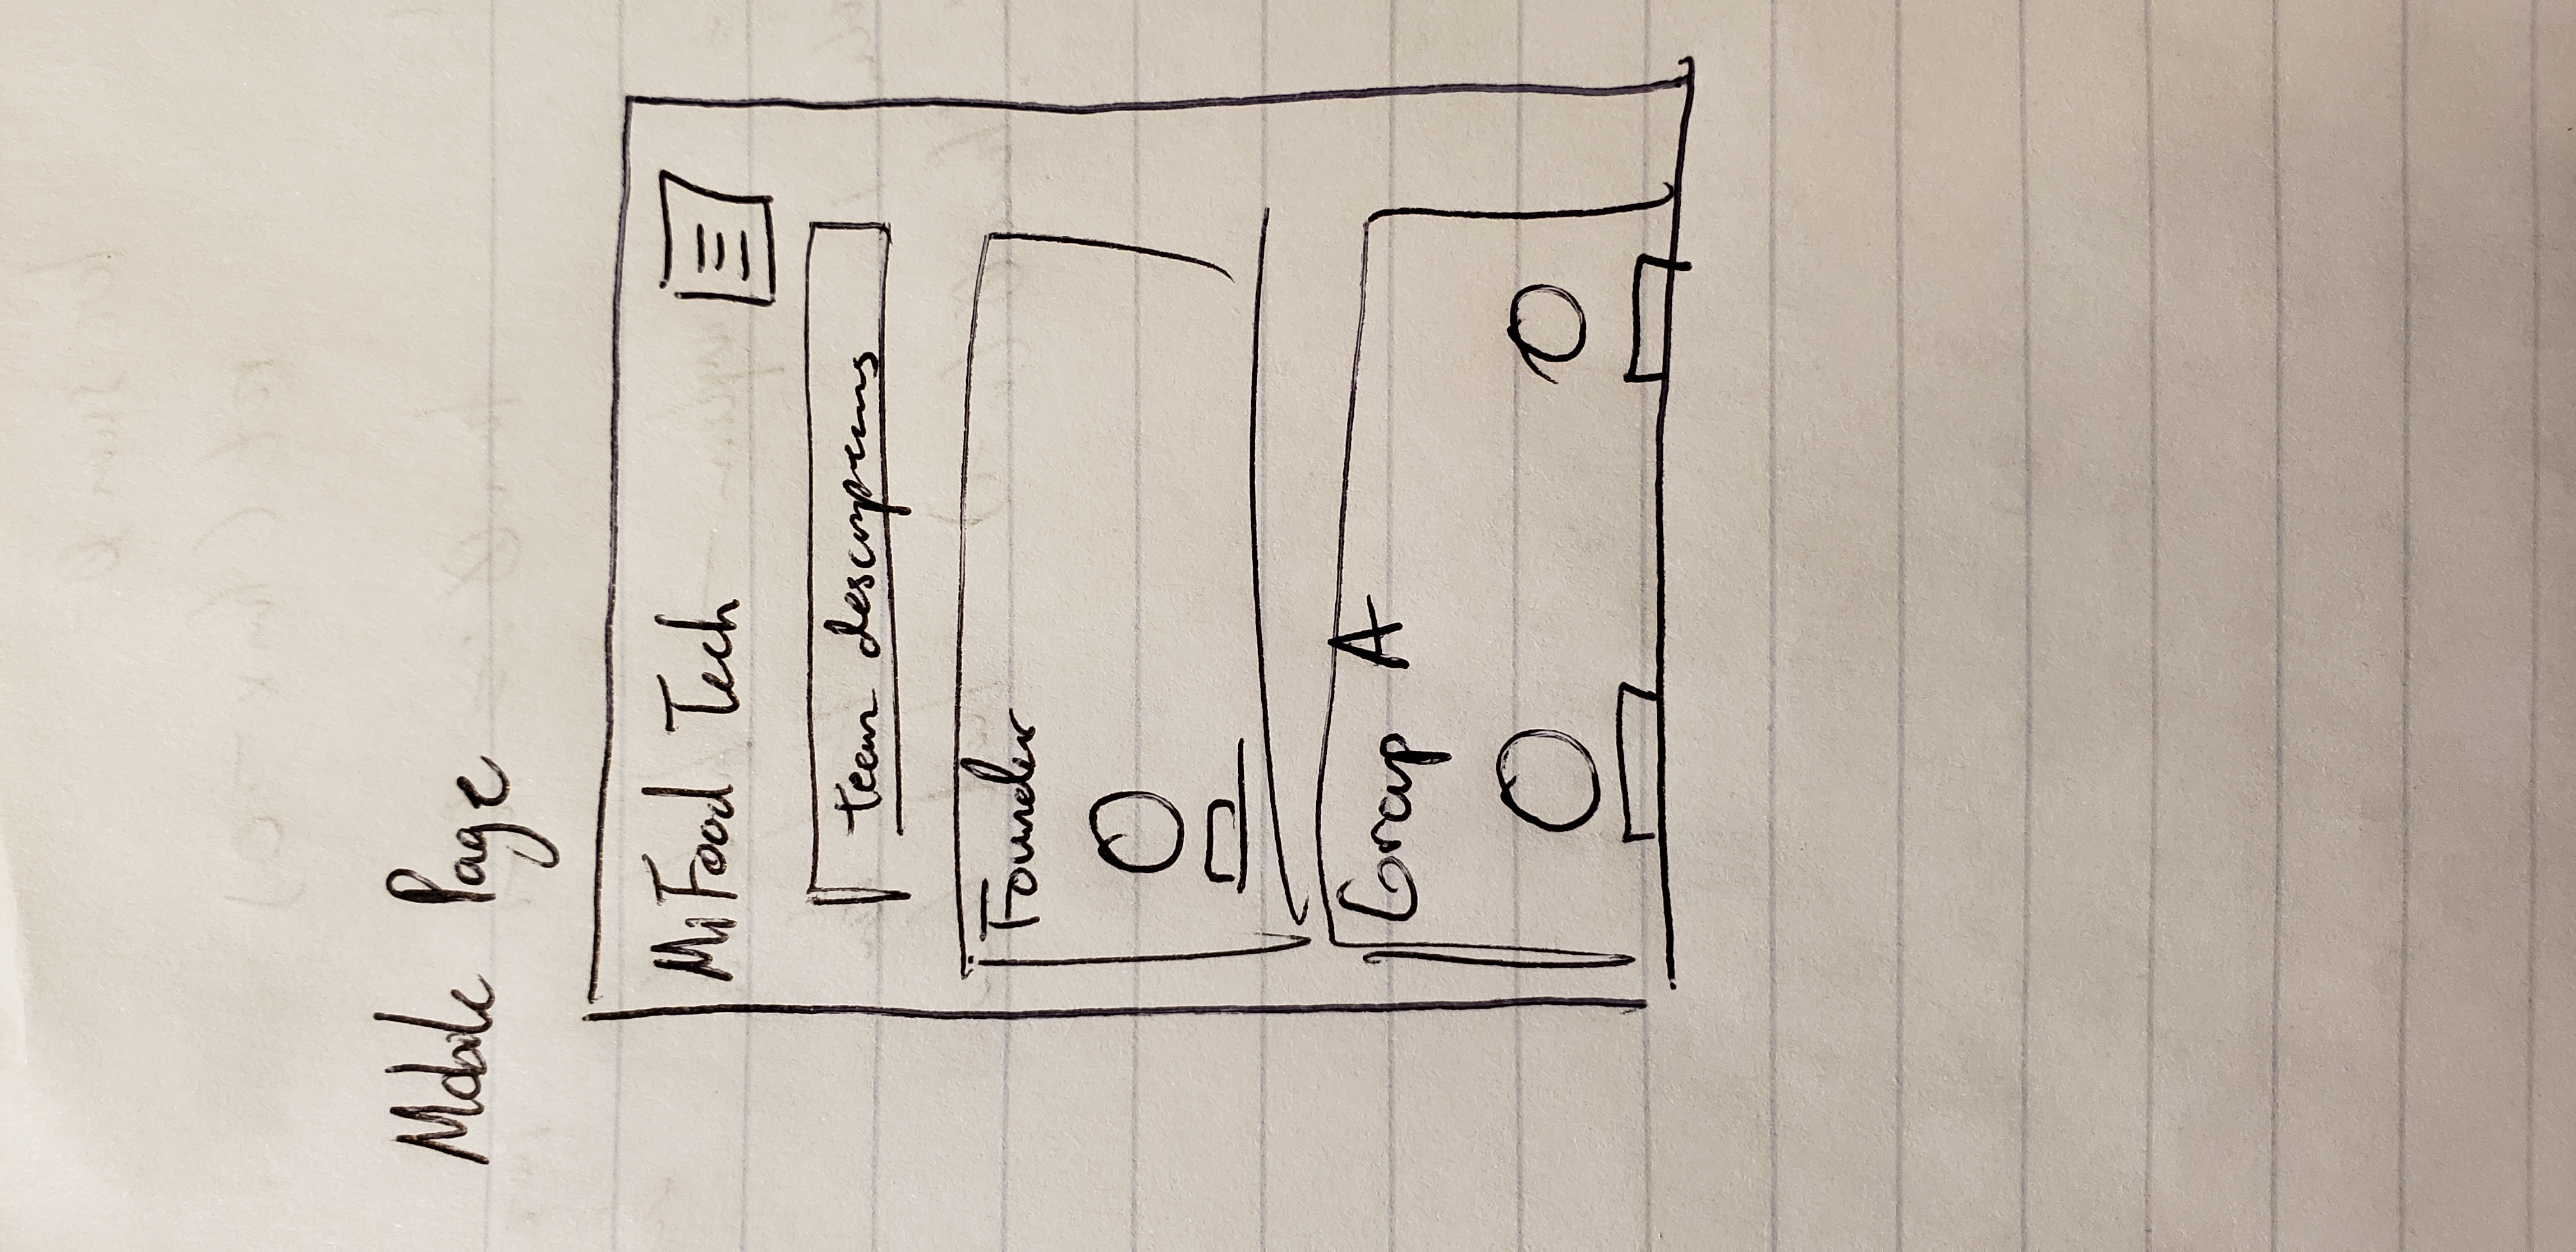 Mobile Page
MiFood Tech
team descriptions
Founder
Group A